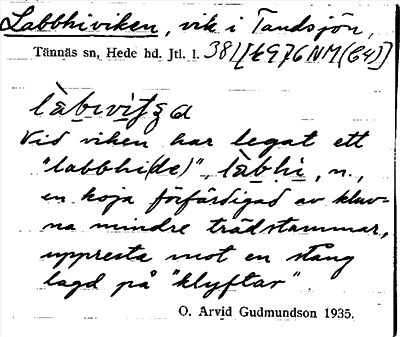 Labbhiviken, vik i Tandsjön,
Tännäs sn, Hede hd. Jtl. l. 381
Vid viken har legat ett
"labbhi(de)", làbhi, n.,
en koja förfärdigad av kluv-
na mindre trädstammar,
uppresta mot en stång
lagd på "klyftar".
O. Arvid Gudmundson 1935.